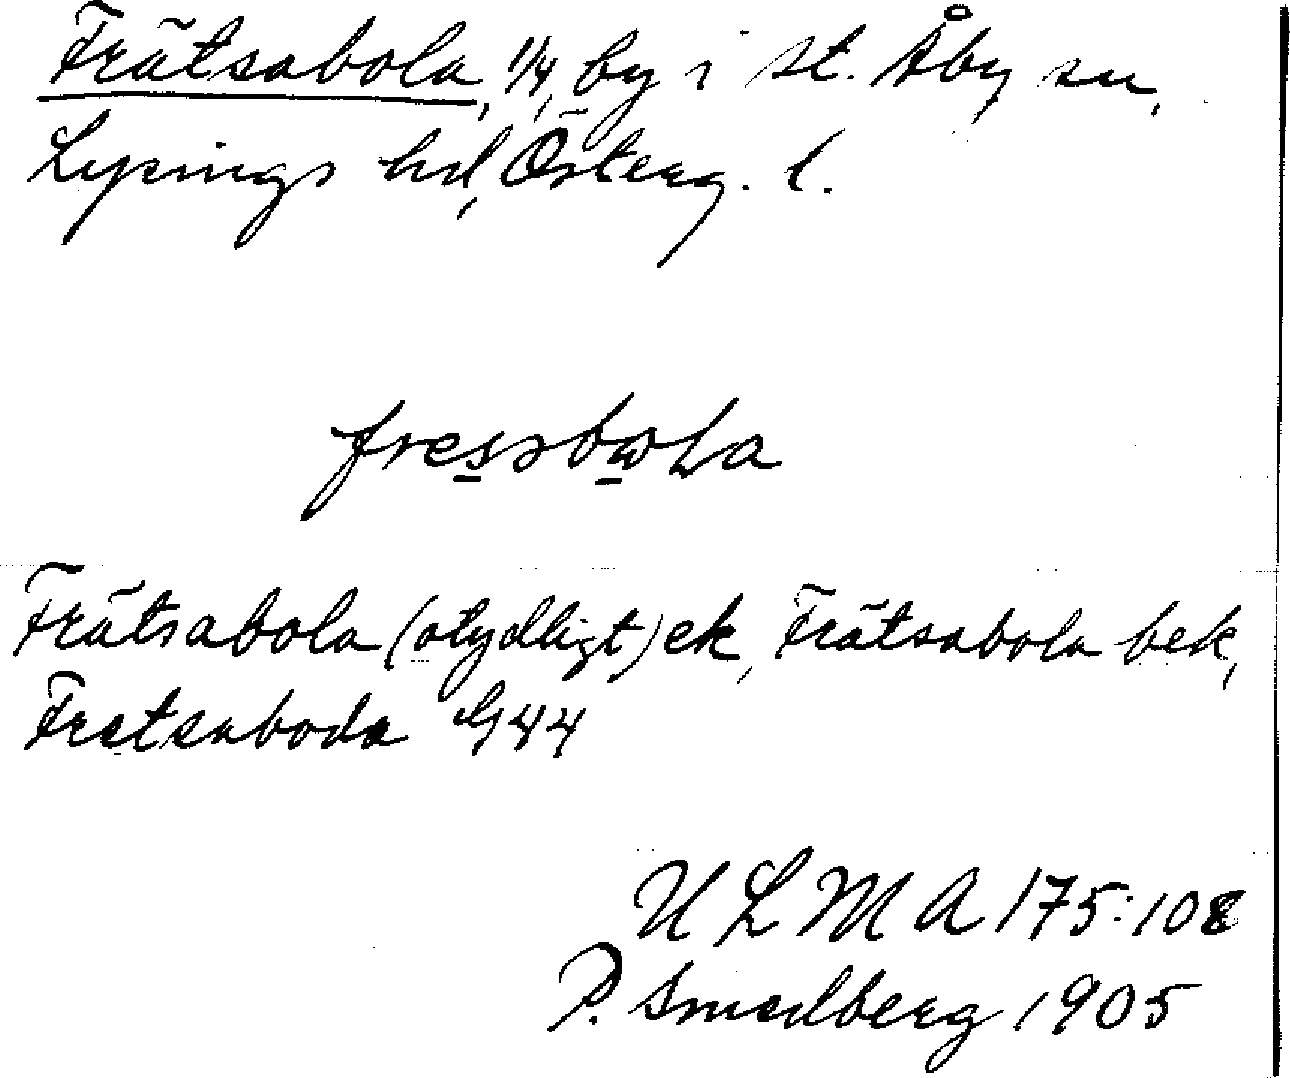 Frätsabola, 1/4, by i st. Åby sn,
Lysings hd, Österg. l.
fressbωla
Frätsabola (otydligt) ek, Frätsabola bek,
Fretsaboda Gj 44
U L M A 175:108
P. Smedberg 1905